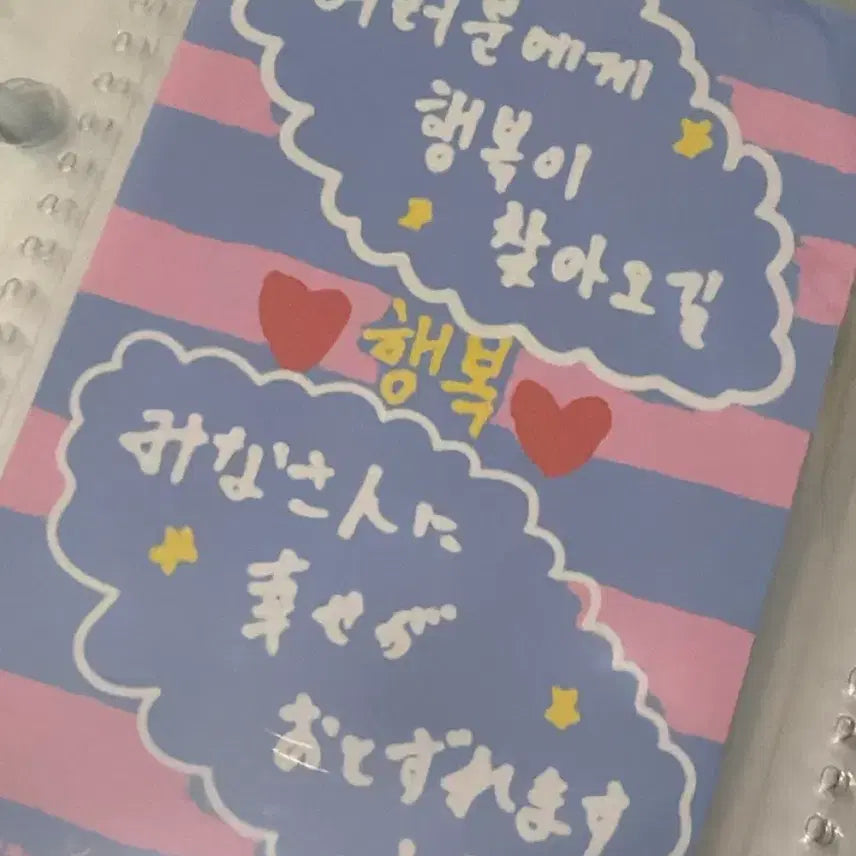 여러분에게
행복이
찾아오길
행복
みなさんに
幸せが
おとずれます